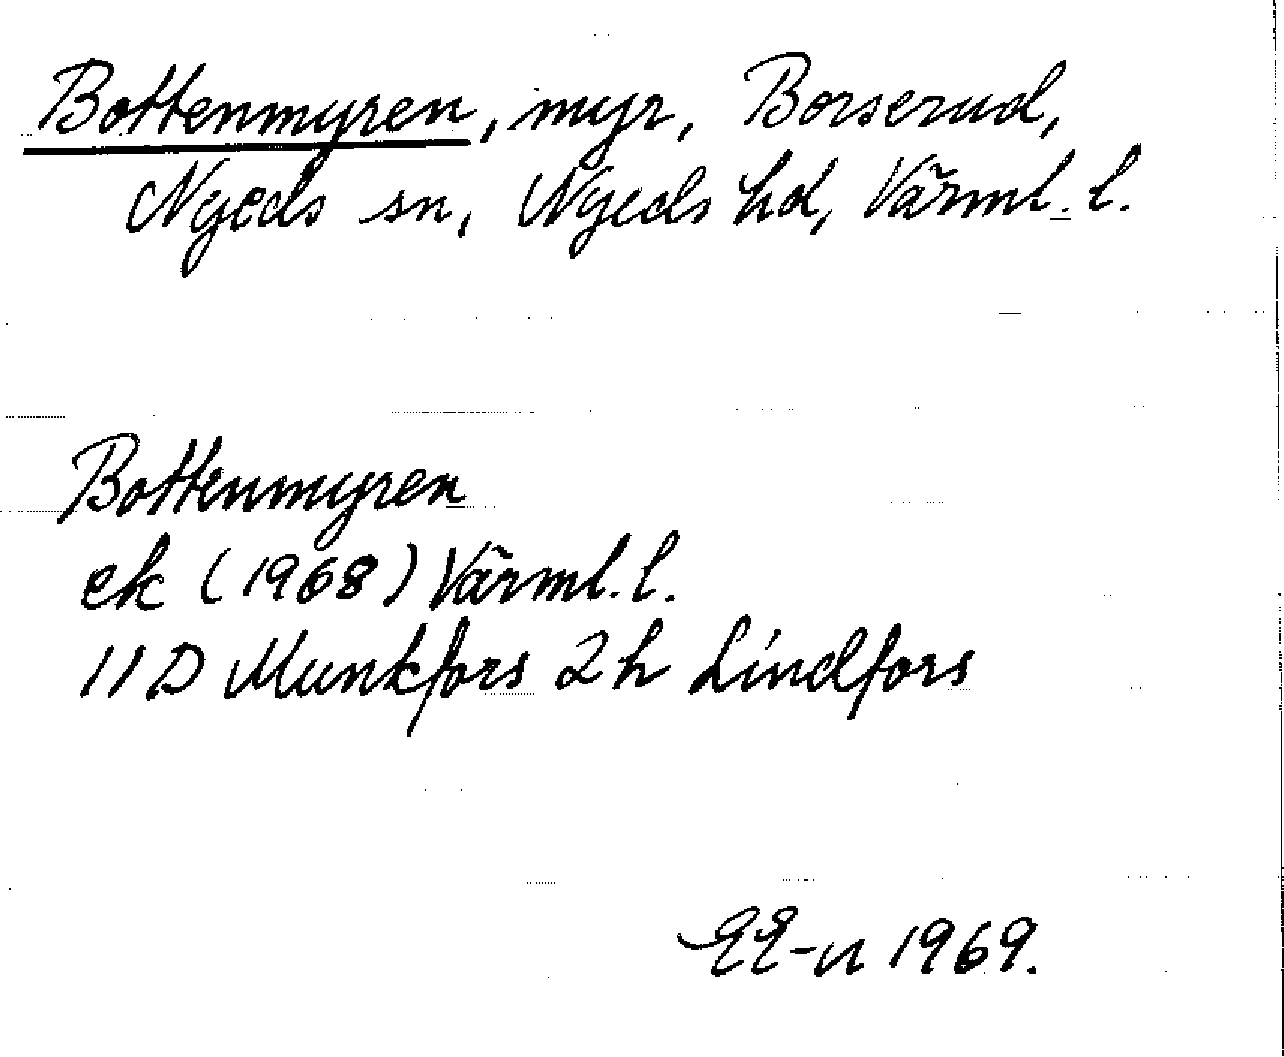 Bottenmyren, myr, Borserud,
Nyeds sn, Nyeds hd, Värml. l.
Bottenmyren
ek (1968) Värml. l.
11D Munkfors 2h Lindfors
EE-n 1969.